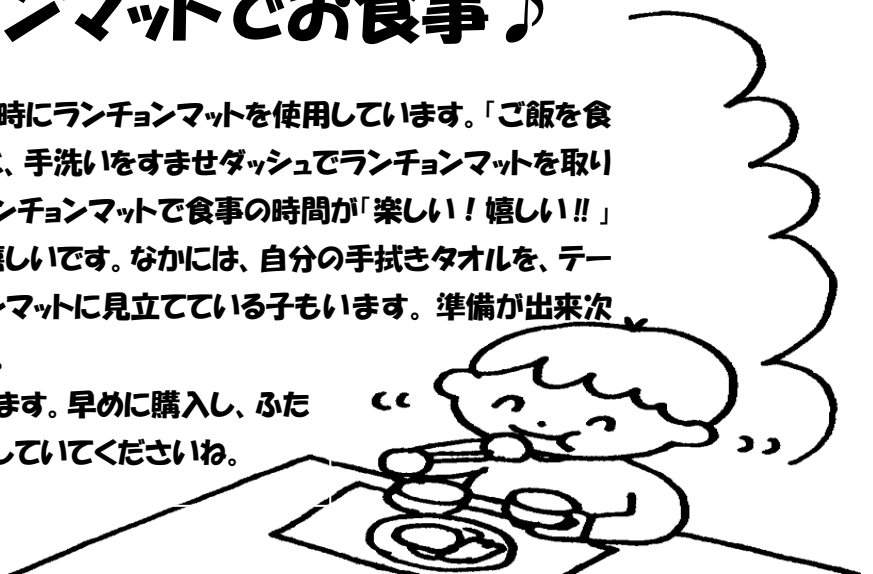 ンマットでお食事♪
時にランチョンマットを使用しています。「ご飯を食
、手洗いをすませダッシュでランチョンマットを取り
ンチョンマットで食事の時間が「楽しい！嬉しい‼」
しいです。なかには、自分の手拭きタオルを、テー
マットに見立てている子もいます。準備が出来次
。
ます。早めに購入し、ふた
していてくださいね。